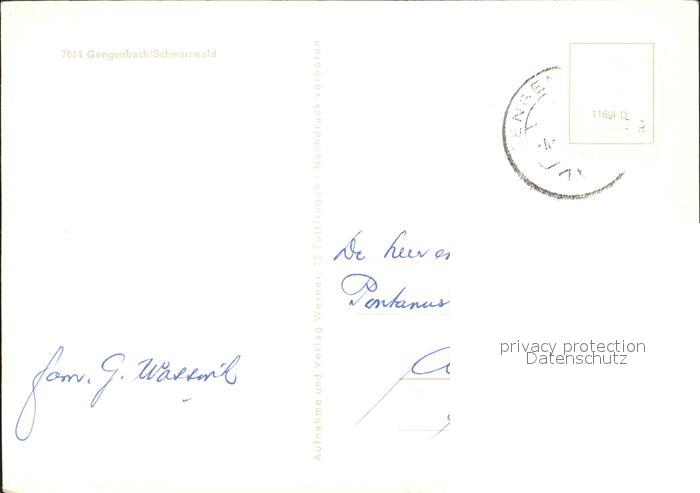 7614 Gengenbach/Schwarzwald
Aufnahme und Verlag Werner, 72 Tuttlingen · Nachdruck verboten
GENGEN
116/4 D
De heer en
Pontanus
fam. G.
privacy protection
Datenschutz